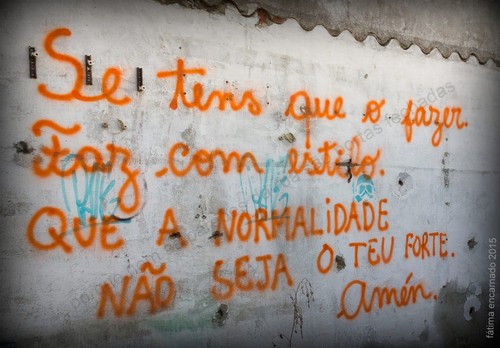 Se tens que o fazer.
Faz com estilo.
QUE A NORMALiDADE
NÃO SEJA O TEU FORTE.
Amén.
fátima encarnado 2015